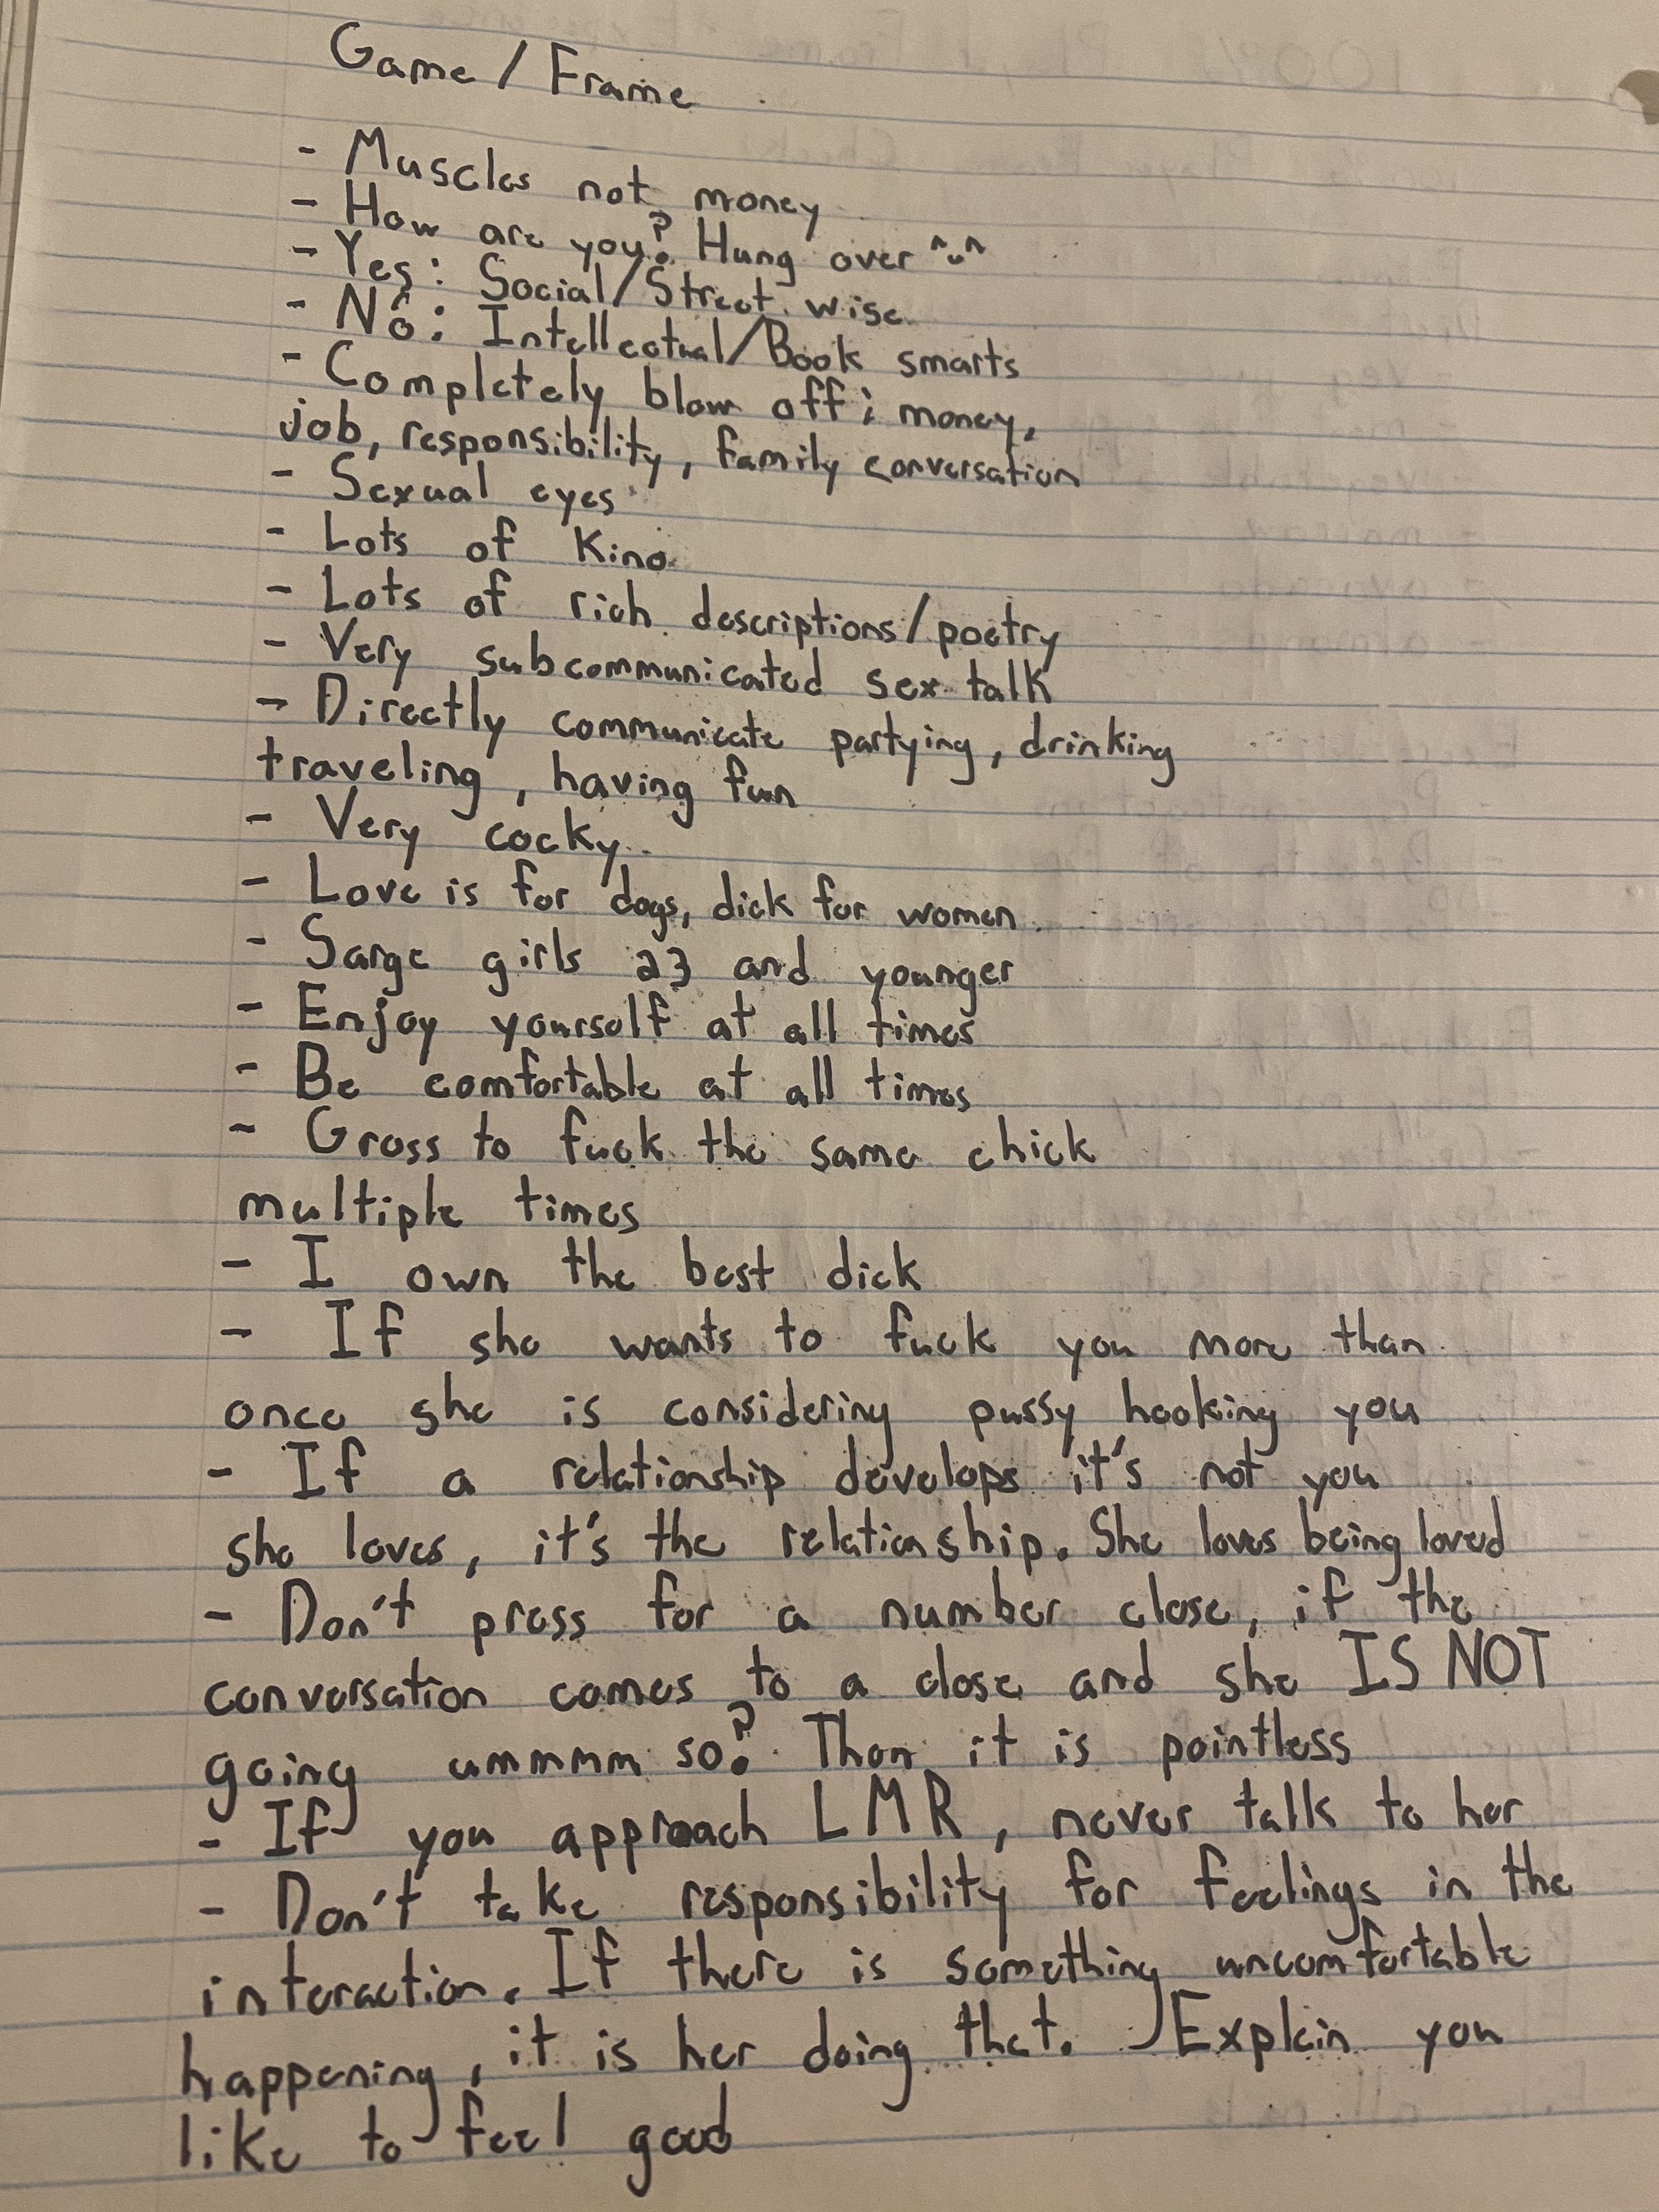 Game / Frame
- Muscles not money
- How are you? Hung over ^u^
- Yes: Social/Street wise
- No: Intellectual/Book smarts
- Completely blow off; money,
job, responsibility, family conversation
- Sexual eyes
- Lots of Kino
- Lots of rich descriptions/poetry
- Very subcommunicated sex talk
- Directly communicate partying, drinking
traveling, having fun
- Very cocky
- Love is for dogs, dick for women
- Sarge girls 23 and younger
- Enjoy yourself at all times
- Be comfortable at all times
- Gross to fuck the same chick
multiple times
- I own the best dick
- If she wants to fuck you more than
once she is considering pussy hooking you
- If a relationship develops it's not you
she loves, it's the relationship. She loves being loved
- Don't press for a number close, if the
conversation comes to a close and she IS NOT
going ummmm so? Then it is pointless
- If you approach LMR, never talk to her
- Don't take responsibility for feelings in the
interaction. If there is something uncomfortable
happening, it is her doing that. Explain you
like to feel good